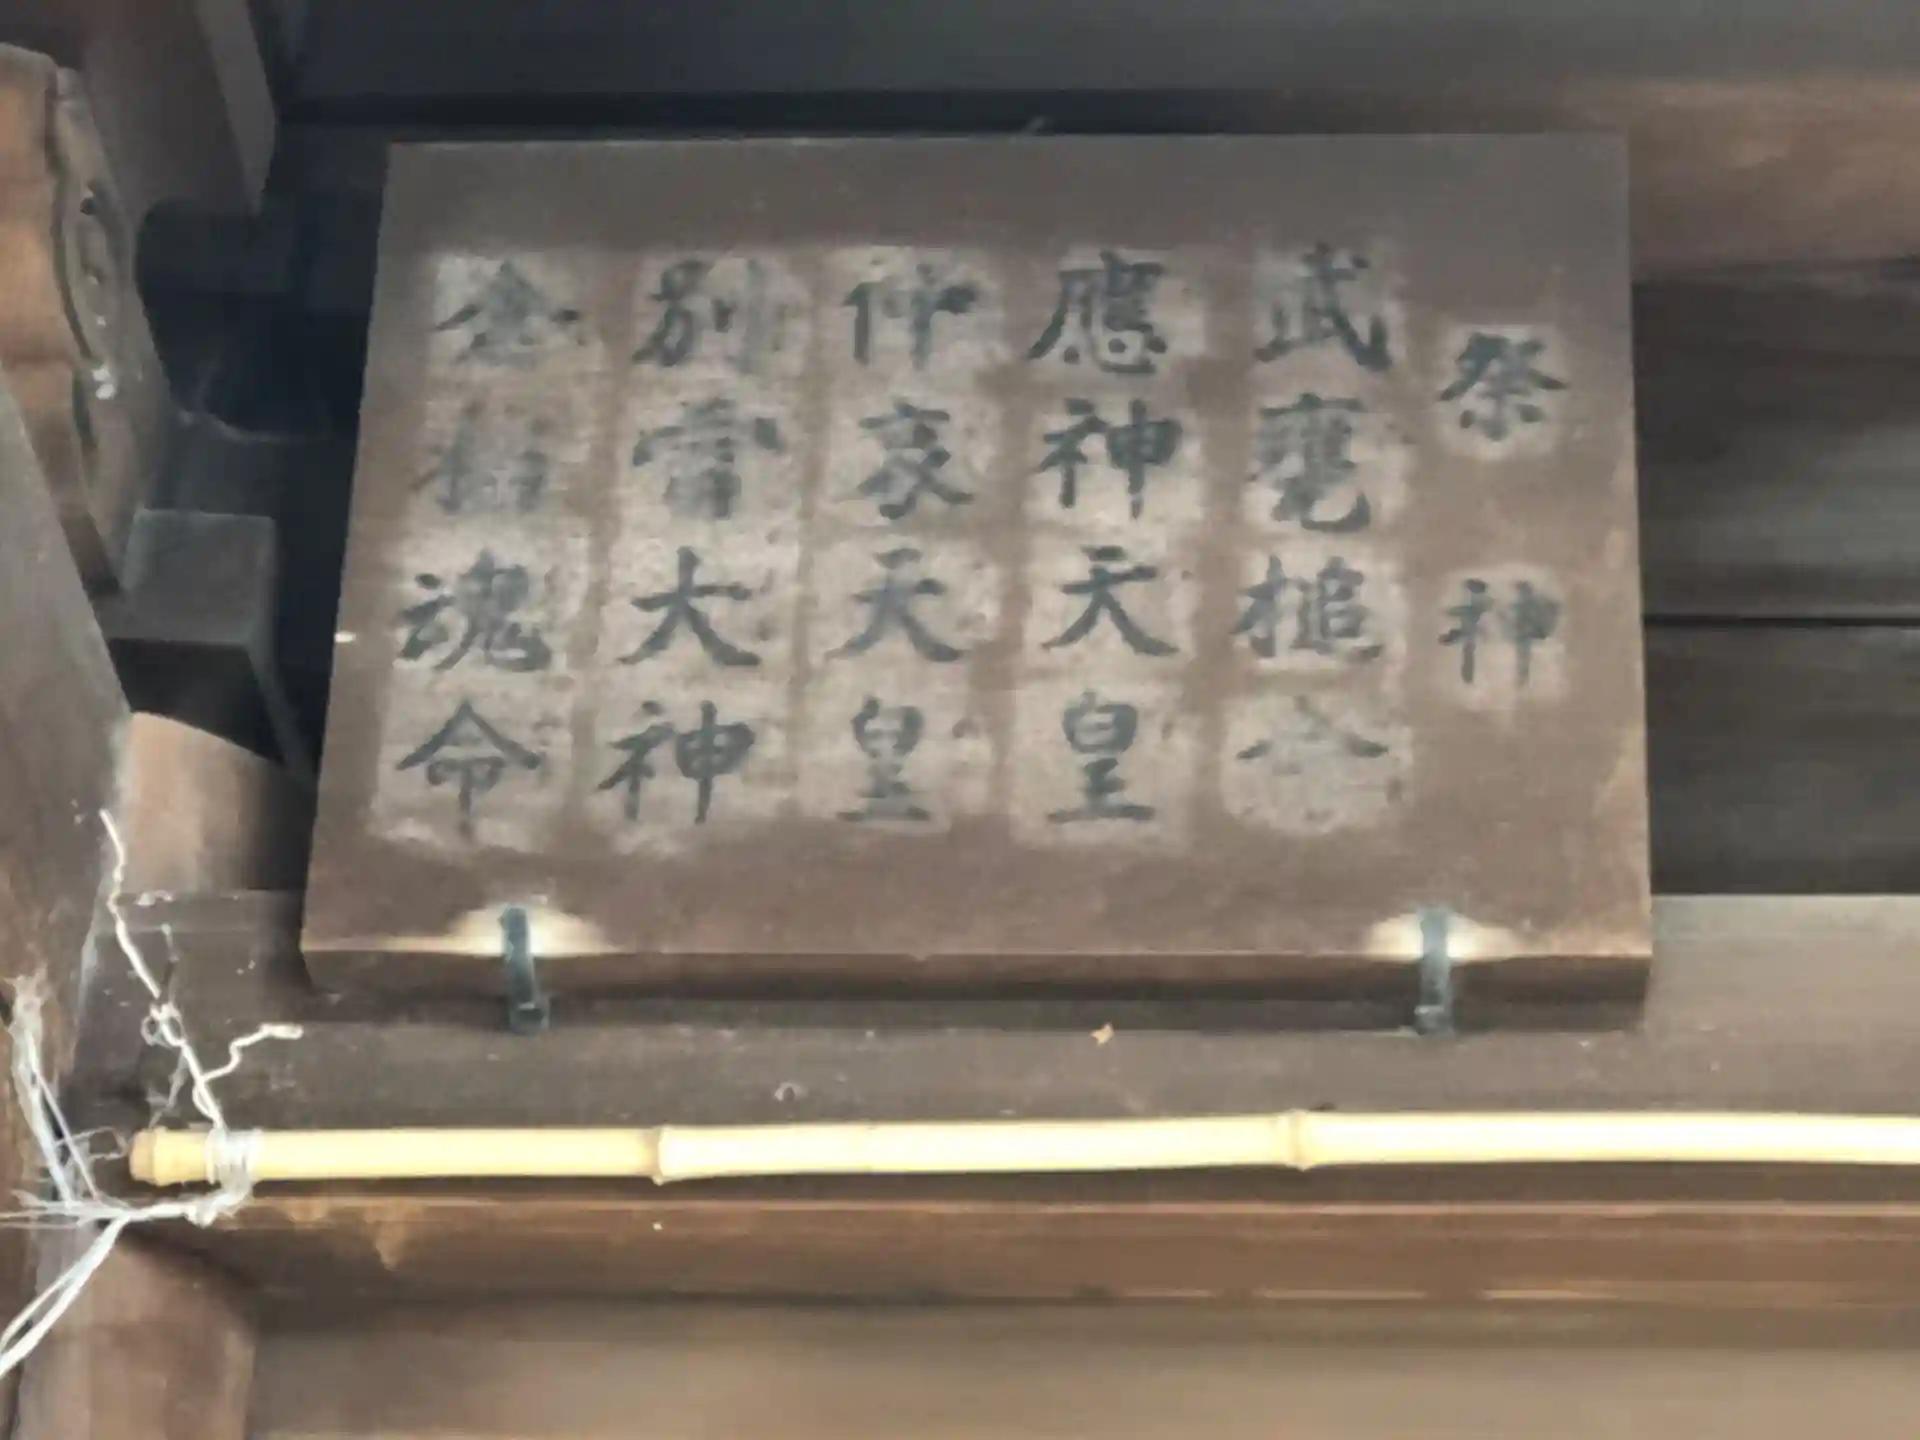 祭神
武甕槌命
應神天皇
仲哀天皇
別雷大神
倉稲魂命